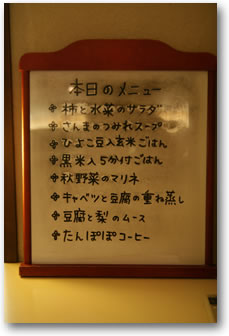 本日のメニュー
柿と水菜のサラダ
さんまのつみれスープ
ひよこ豆入玄米ごはん
黒米入5分付ごはん
秋野菜のマリネ
キャベツと豆腐の重ね蒸し
豆腐と梨のムース
たんぽぽコーヒー